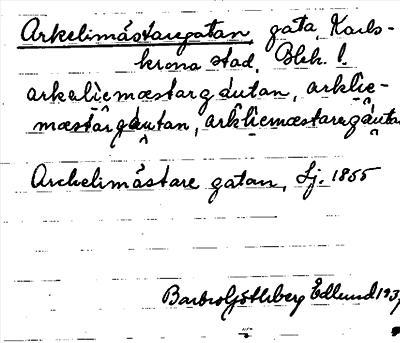 Arkelimästaregatan, gata, Karls-
krona stad, Blek. l.
arkeliemæstargautan, arklie-
mæstargautan, arkliemæstaregauta
Archelimästare gatan, Lj. 1855
Barbro Götlberg Edlund 193